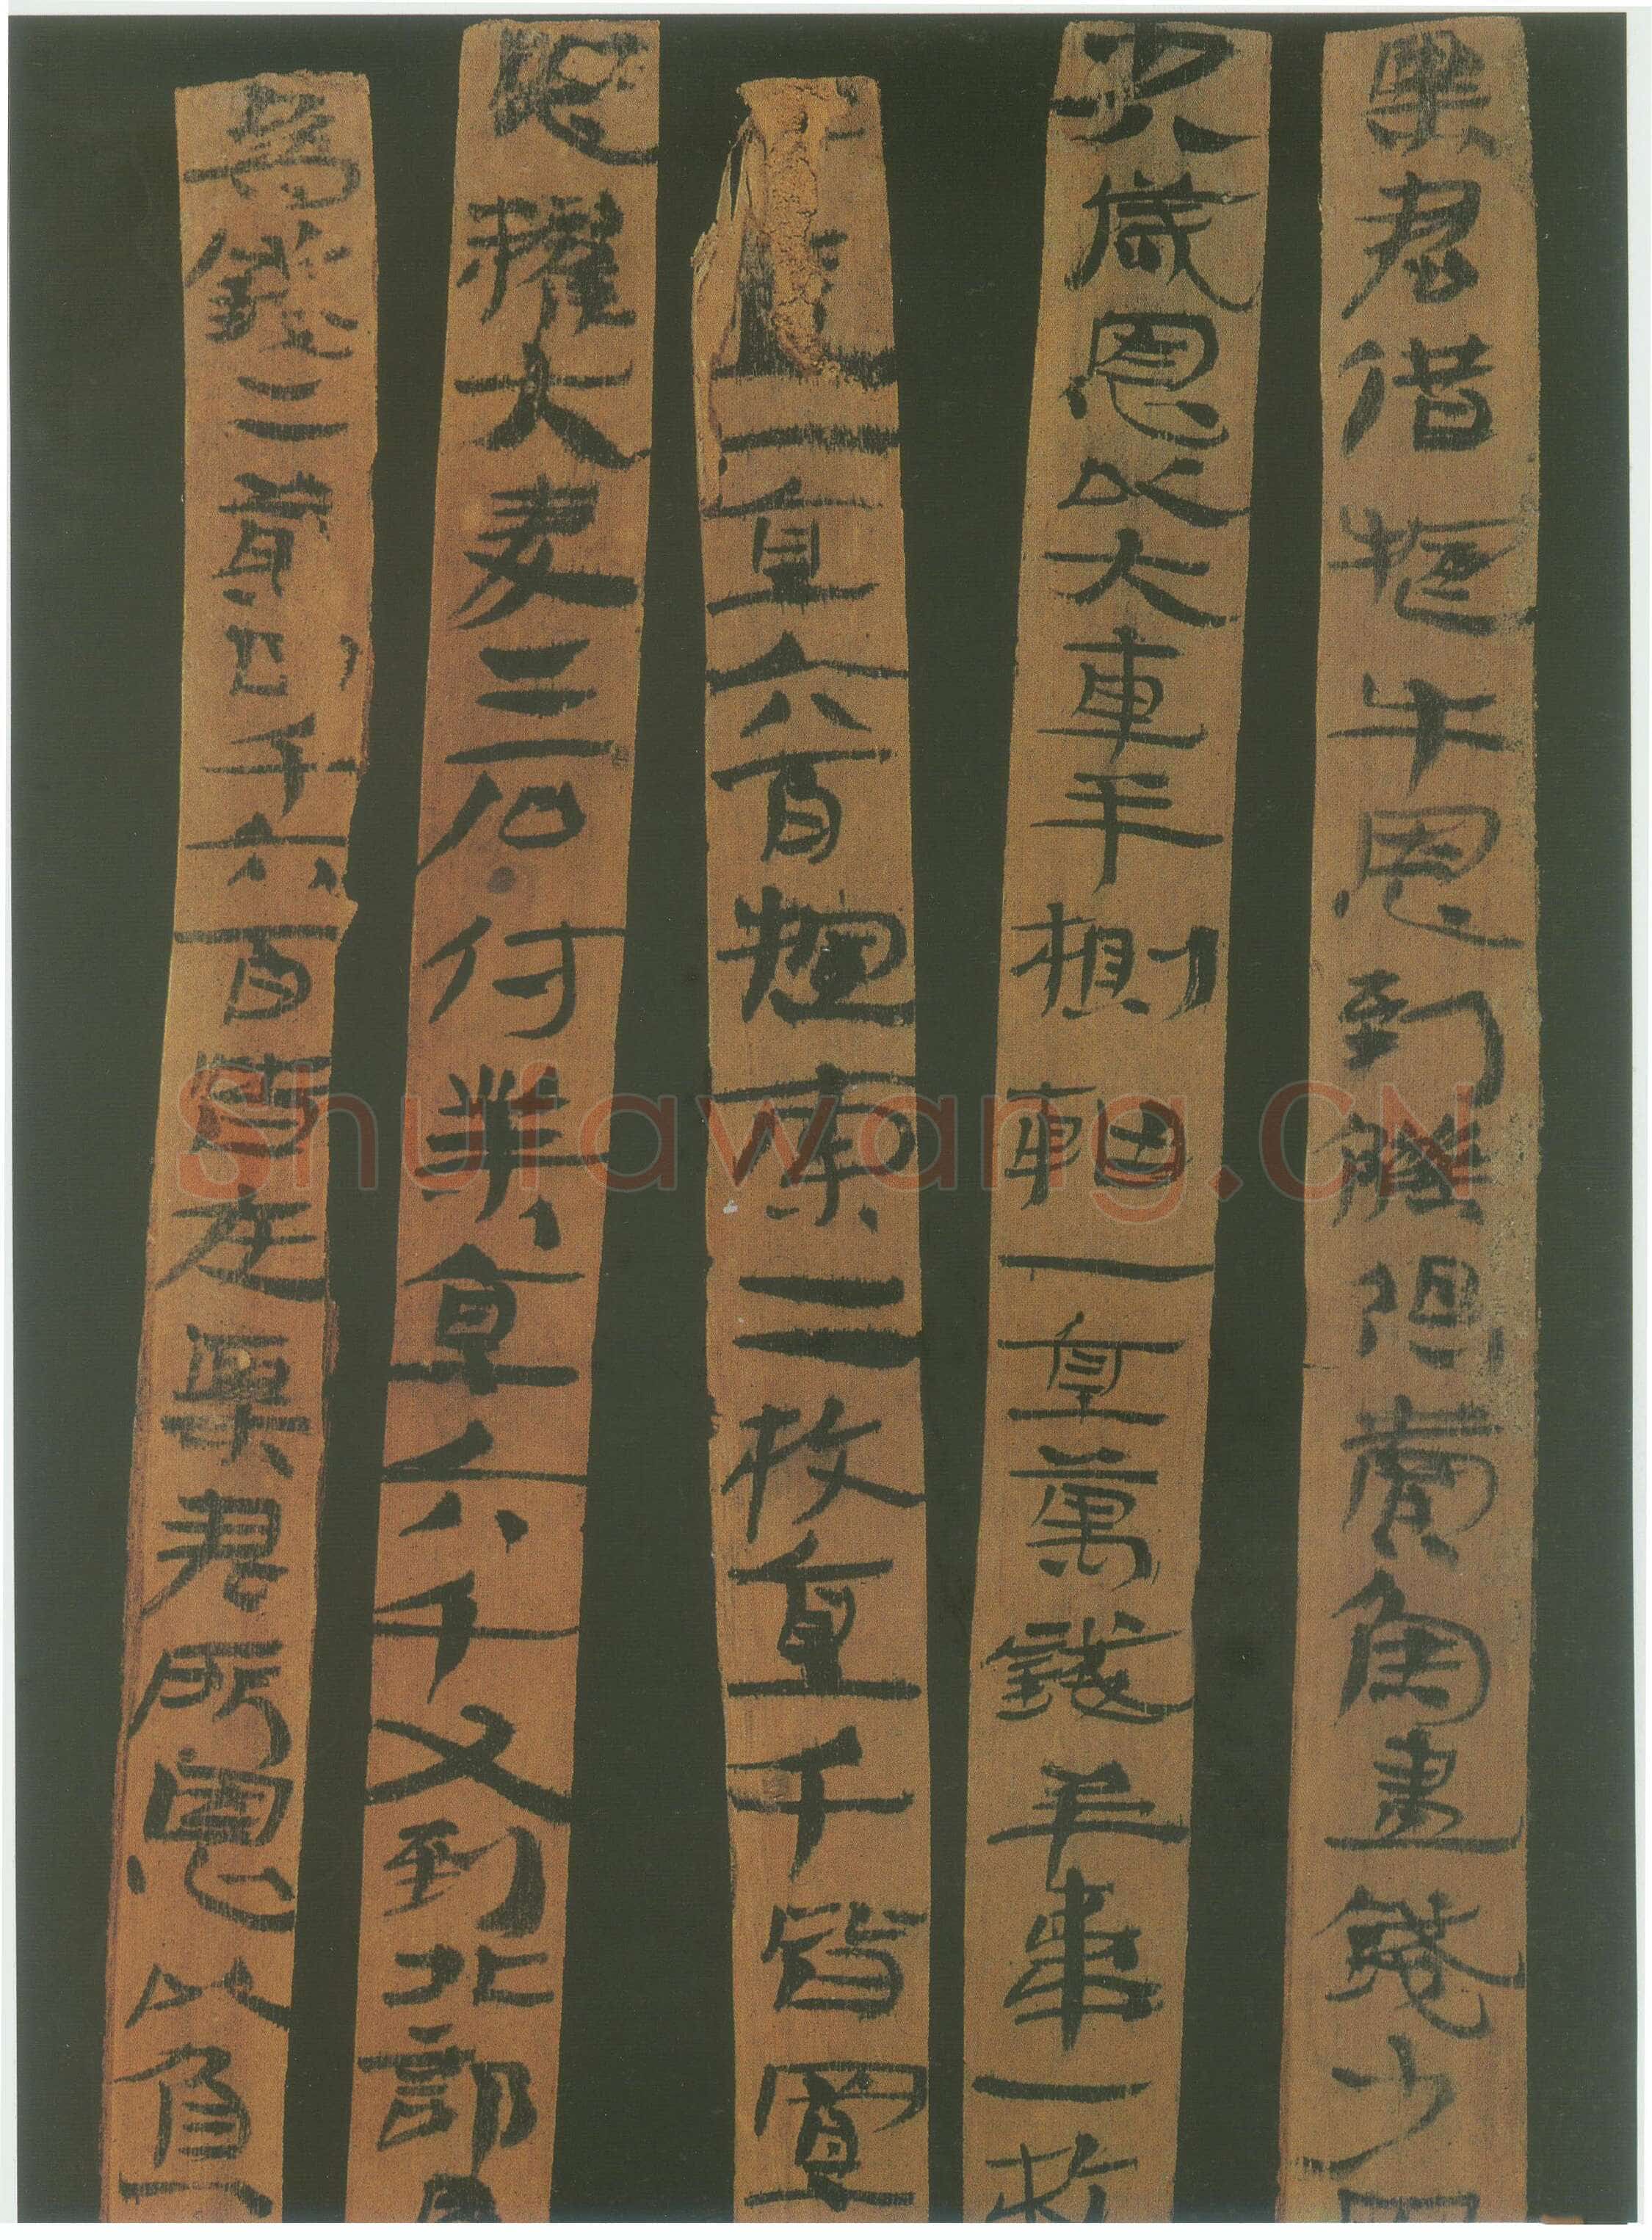 粟君借犅牛恩到觻得賣魚盡錢少因
少八歲恩以大車半軸一直萬錢羊韋一枚
一直六百索二枚直千皆置
恩糴大麥二石付業直六千又到北部爲
爲錢二萬四千六百皆在粟君所恩以負
Shufawang.CN